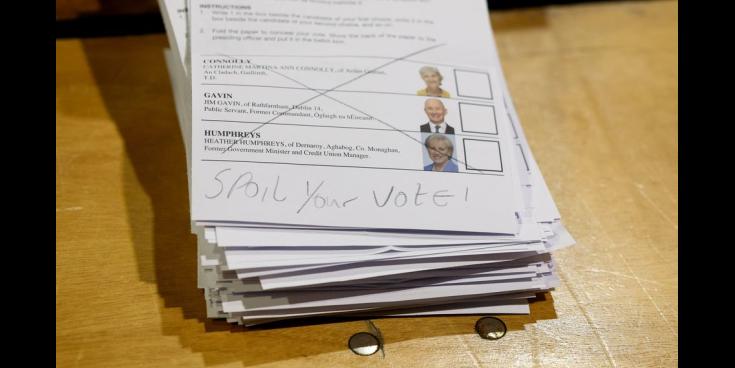 INSTRUCTIONS
1. Write 1 in the box beside the candidate of your first choice, write 2 in the
box beside the candidate of your second choice, and so on.
2. Fold the paper to conceal your vote. Show the back of the paper to the
presiding officer and put it in the ballot box.
CONNOLLY
CATHERINE MARTINA ANN CONNOLLY, of
An Cladach, Gaillimh,
T.D.
GAVIN
JIM GAVIN, of Rathfarnham, Dublin 14,
Public Servant, Former Commandant, Óglaigh na hÉireann.
HUMPHREYS
HEATHER HUMPHREYS, of Dernaroy, Aghabog, Co. Monaghan,
Former Government Minister and Credit Union Manager.
SPOIL Your VOTE!